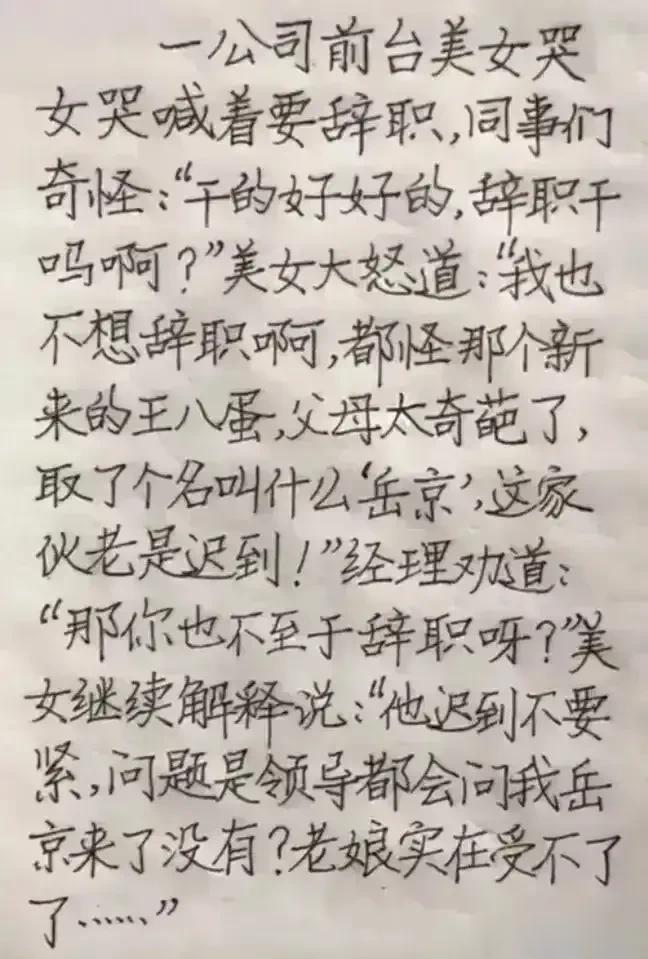 一公司前台美女哭
女哭喊着要辞职,同事们
奇怪:“干的好好的,辞职干
吗啊?”美女大怒道:“我也
不想辞职啊,都怪那个新
来的王八蛋,父母太奇葩了,
取了个名叫什么‘岳京’,这家
伙老是迟到!”经理劝道:
“那你也不至于辞职呀?”美
女继续解释说:“他迟到不要
紧,问题是领导都会问我岳
京来了没有?老娘实在受不了
了……”